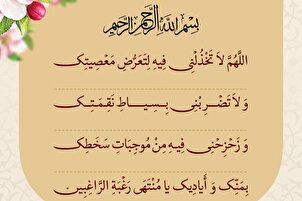 بِسْمِ اللَّهِ الرَّحْمَنِ الرَّحِيمِ
اللَّهُمَّ لاَ تَخْذُلْنِي فِيهِ لِتَعَرُّضِ مَعْصِيَتِکَ
وَ لاَ تَضْرِبْنِي بِسِيَاطِ نَقِمَتِکَ
وَ زَحْزِحْنِي فِيهِ مِنْ مُوجِبَاتِ سَخَطِکَ
بِمَنِّکَ وَ أَيَادِيکَ يَا مُنْتَهَى رَغْبَةِ الرَّاغِبِينَ